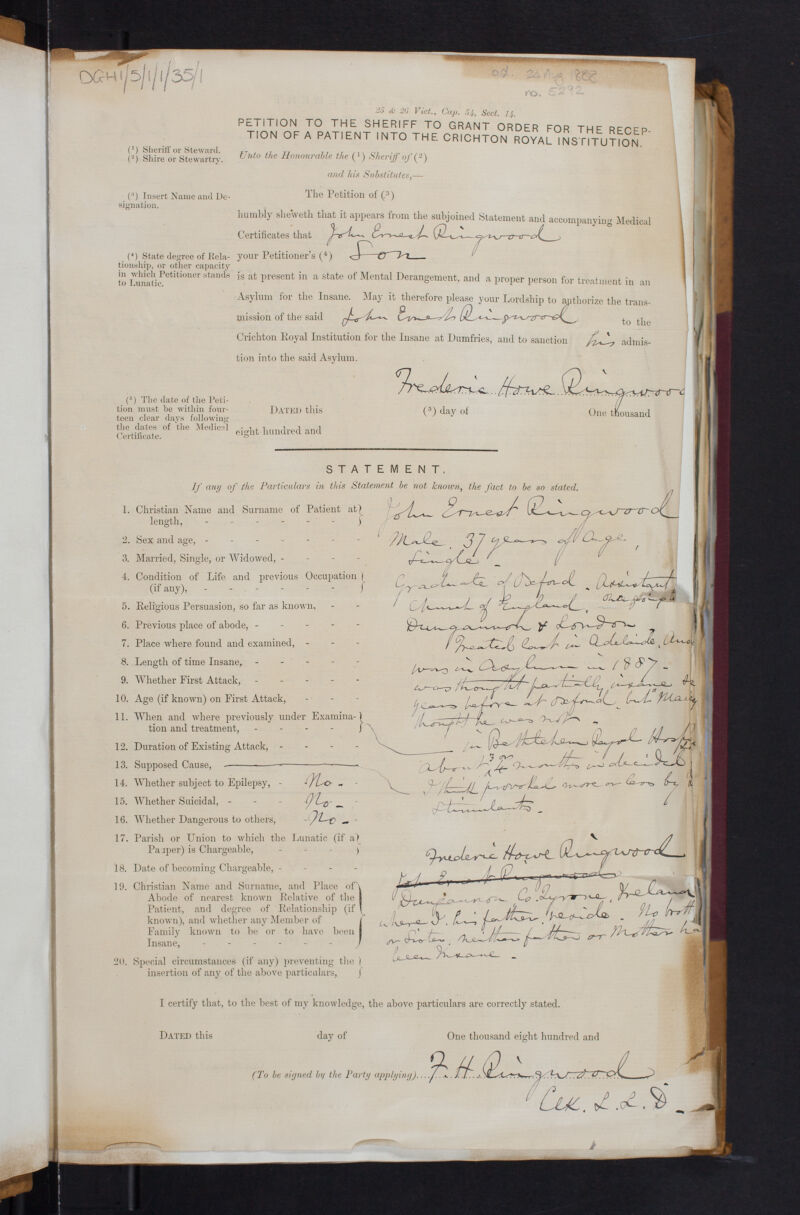 DGH1/5/1/1/35/1
ad. 24 Aug 1888
no. 5292
25 & 26 Vict., Cap. 54, Sect. 14.
PETITION TO THE SHERIFF TO GRANT ORDER FOR THE RECEP-
TION OF A PATIENT INTO THE CRICHTON ROYAL INSTITUTION.
(1) Sheriff or Steward.
(2) Shire or Stewartry.
Unto the Honourable the (1) Sheriff of (2)
and his Substitutes,—
(3) Insert Name and De-
signation.
The Petition of (3)
humbly sheweth that it appears from the subjoined Statement and accompanying Medical
Certificates that John Ernest Ringwood
(4) State degree of Rela-
tionship, or other capacity
in which Petitioner stands
to Lunatic.
your Petitioner's (4) Son
is at present in a state of Mental Derangement, and a proper person for treatment in an
Asylum for the Insane. May it therefore please your Lordship to authorize the trans-
mission of the said John Ernest Ringwood to the
Crichton Royal Institution for the Insane at Dumfries, and to sanction his admis-
tion into the said Asylum.
Frederic Howe Ringwood
(5) The date of the Peti-
tion must be within four-
teen clear days following
the dates of the Medical
Certificate.
DATED this (5) day of One thousand
eight hundred and
STATEMENT.
If any of the Particulars in this Statement be not known, the fact to be so stated.
1. Christian Name and Surname of Patient at
length, - - - - - - - John Ernest Ringwood
2. Sex and age, - - - - - - - Male. 37 years of Age,
3. Married, Single, or Widowed, - - Single -
4. Condition of Life and previous Occupation
(if any), - - - - - - - Graduate of Oxford. Assistant
5. Religious Persuasion, so far as known, - - Church of England,
6. Previous place of abode, - - - - - Dungannon & London.
7. Place where found and examined, - - - Treated last in Adelaide, And
8. Length of time Insane, - - - - - was in Asylum in 1887 -
9. Whether First Attack, - - - - - was thought partially insane
10. Age (if known) on First Attack, - - years before at Oxford, but Many
11. When and where previously under Examina-
tion and treatment, - - - - - thought he was not -
in Bethlehem Royal Hosp
12. Duration of Existing Attack, - - - - About 3 or 4 months undecided
13. Supposed Cause, I think provoked more or less by
stimulants -
14. Whether subject to Epilepsy, - No -
15. Whether Suicidal, - - - No -
16. Whether Dangerous to others, - No -
17. Parish or Union to which the Lunatic (if a
Pauper) is Chargeable, - - - -
18. Date of becoming Chargeable, - - - -
Frederic Howe Ringwood
John Ernest Ringwood
19. Christian Name and Surname, and Place of
Abode of nearest known Relative of the
Patient, and degree of Relationship (if
known), and whether any Member of
Family known to be or to have been
Insane, - - - - - - -
Dungannon Co. Tyrone, Ireland
where I, his father, reside. No broth
or Sister, neither father or Mother ha
been Insane -
20. Special circumstances (if any) preventing the
insertion of any of the above particulars,
I certify that, to the best of my knowledge, the above particulars are correctly stated.
DATED this day of One thousand eight hundred and
(To be signed by the Party applying).... F. H. Ringwood
Clk. L.L.D -